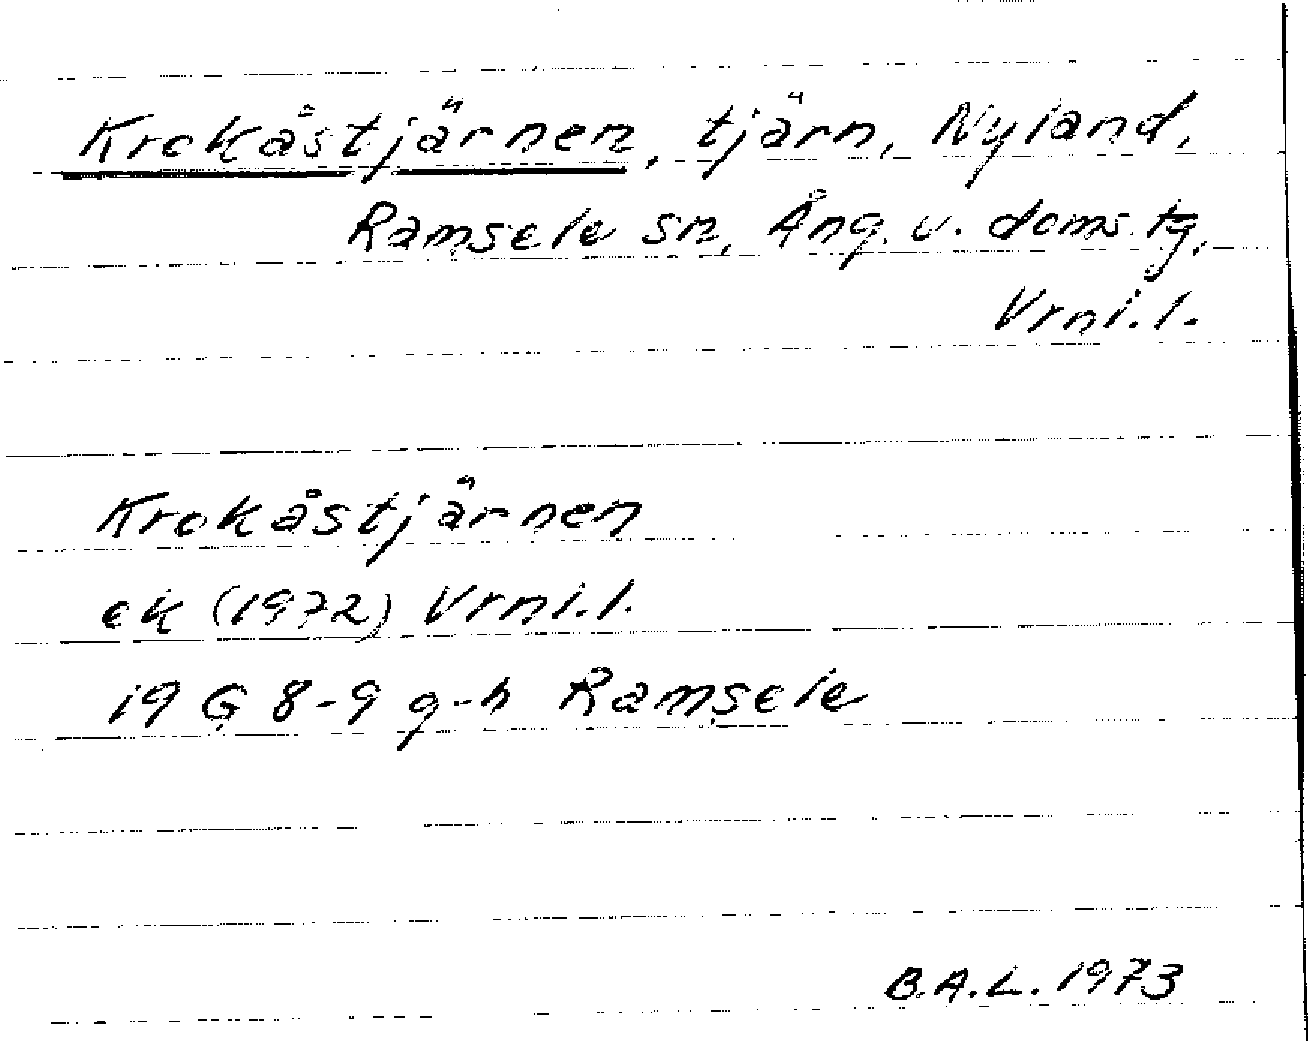 Krokåstjärnen, tjärn, Nyland,
Ramsele sn, Ång. v. doms.tg,
Vrnl.l.
Krokåstjärnen
ek (1972) Vrnl.l.
19 G 8-9 g-h Ramsele
B.A.L. 1973